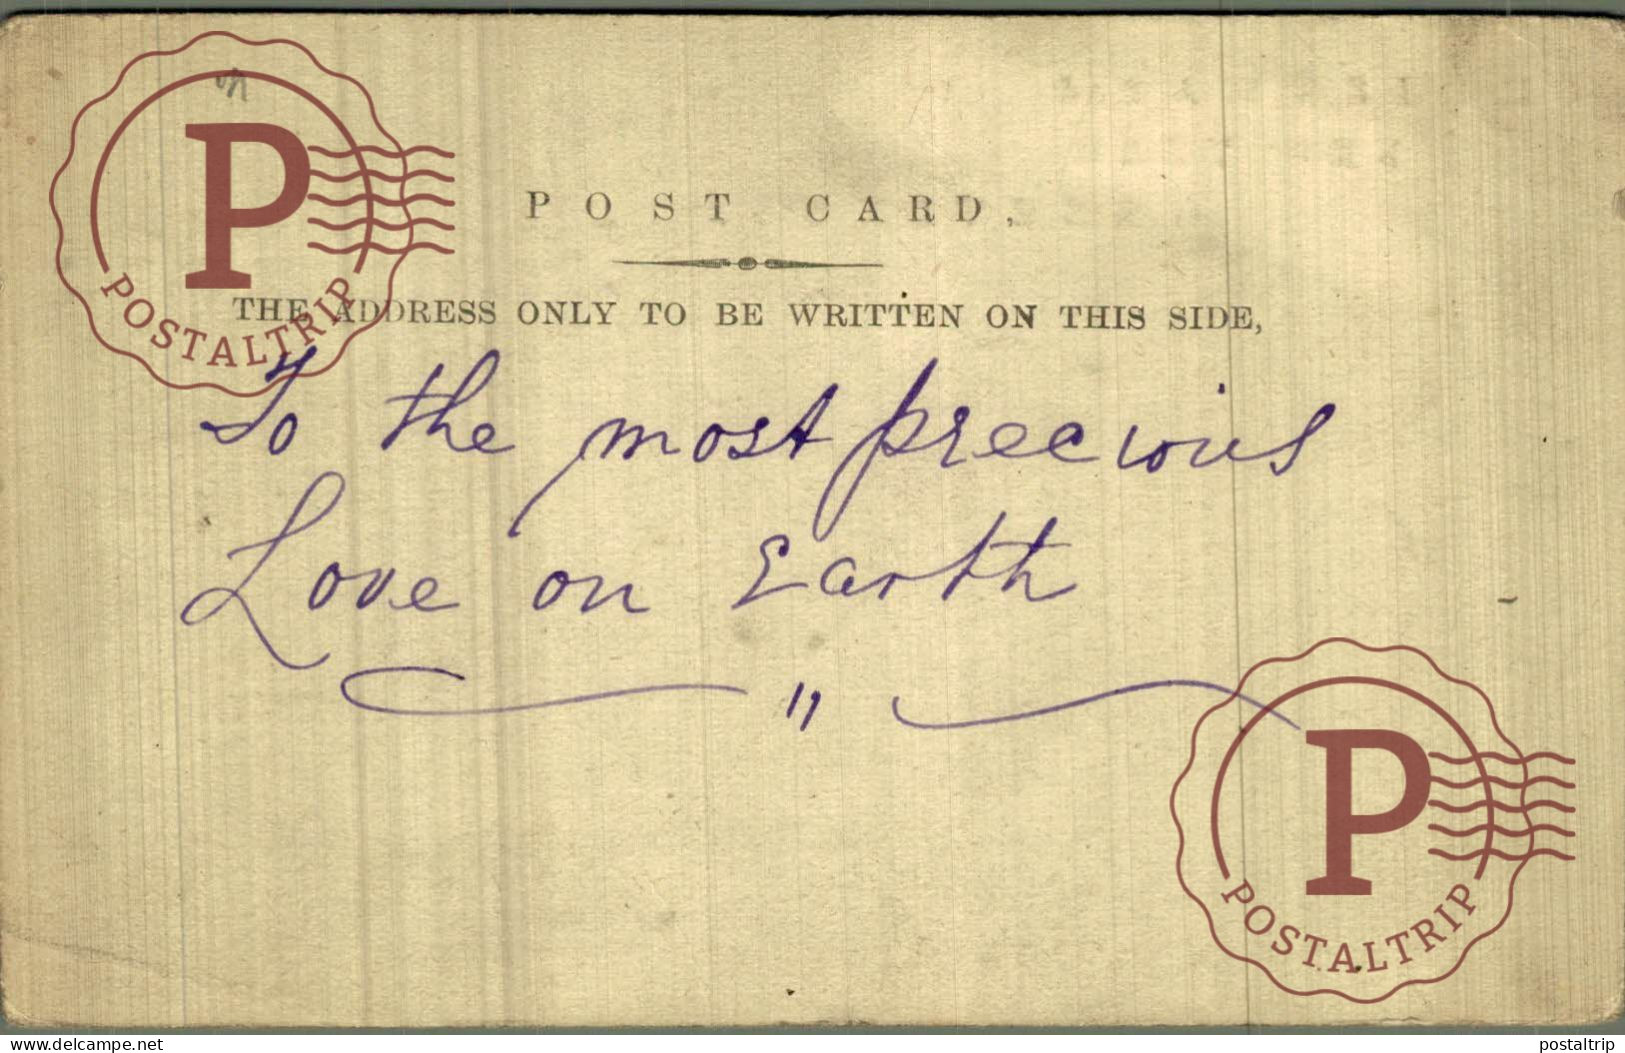 P
POSTALTRIP
POST CARD,
THE ADDRESS ONLY TO BE WRITTEN ON THIS SIDE,
To the most precious
Love on Earth
"
P
POSTALTRIP
www.delcampe.net
postaltrip